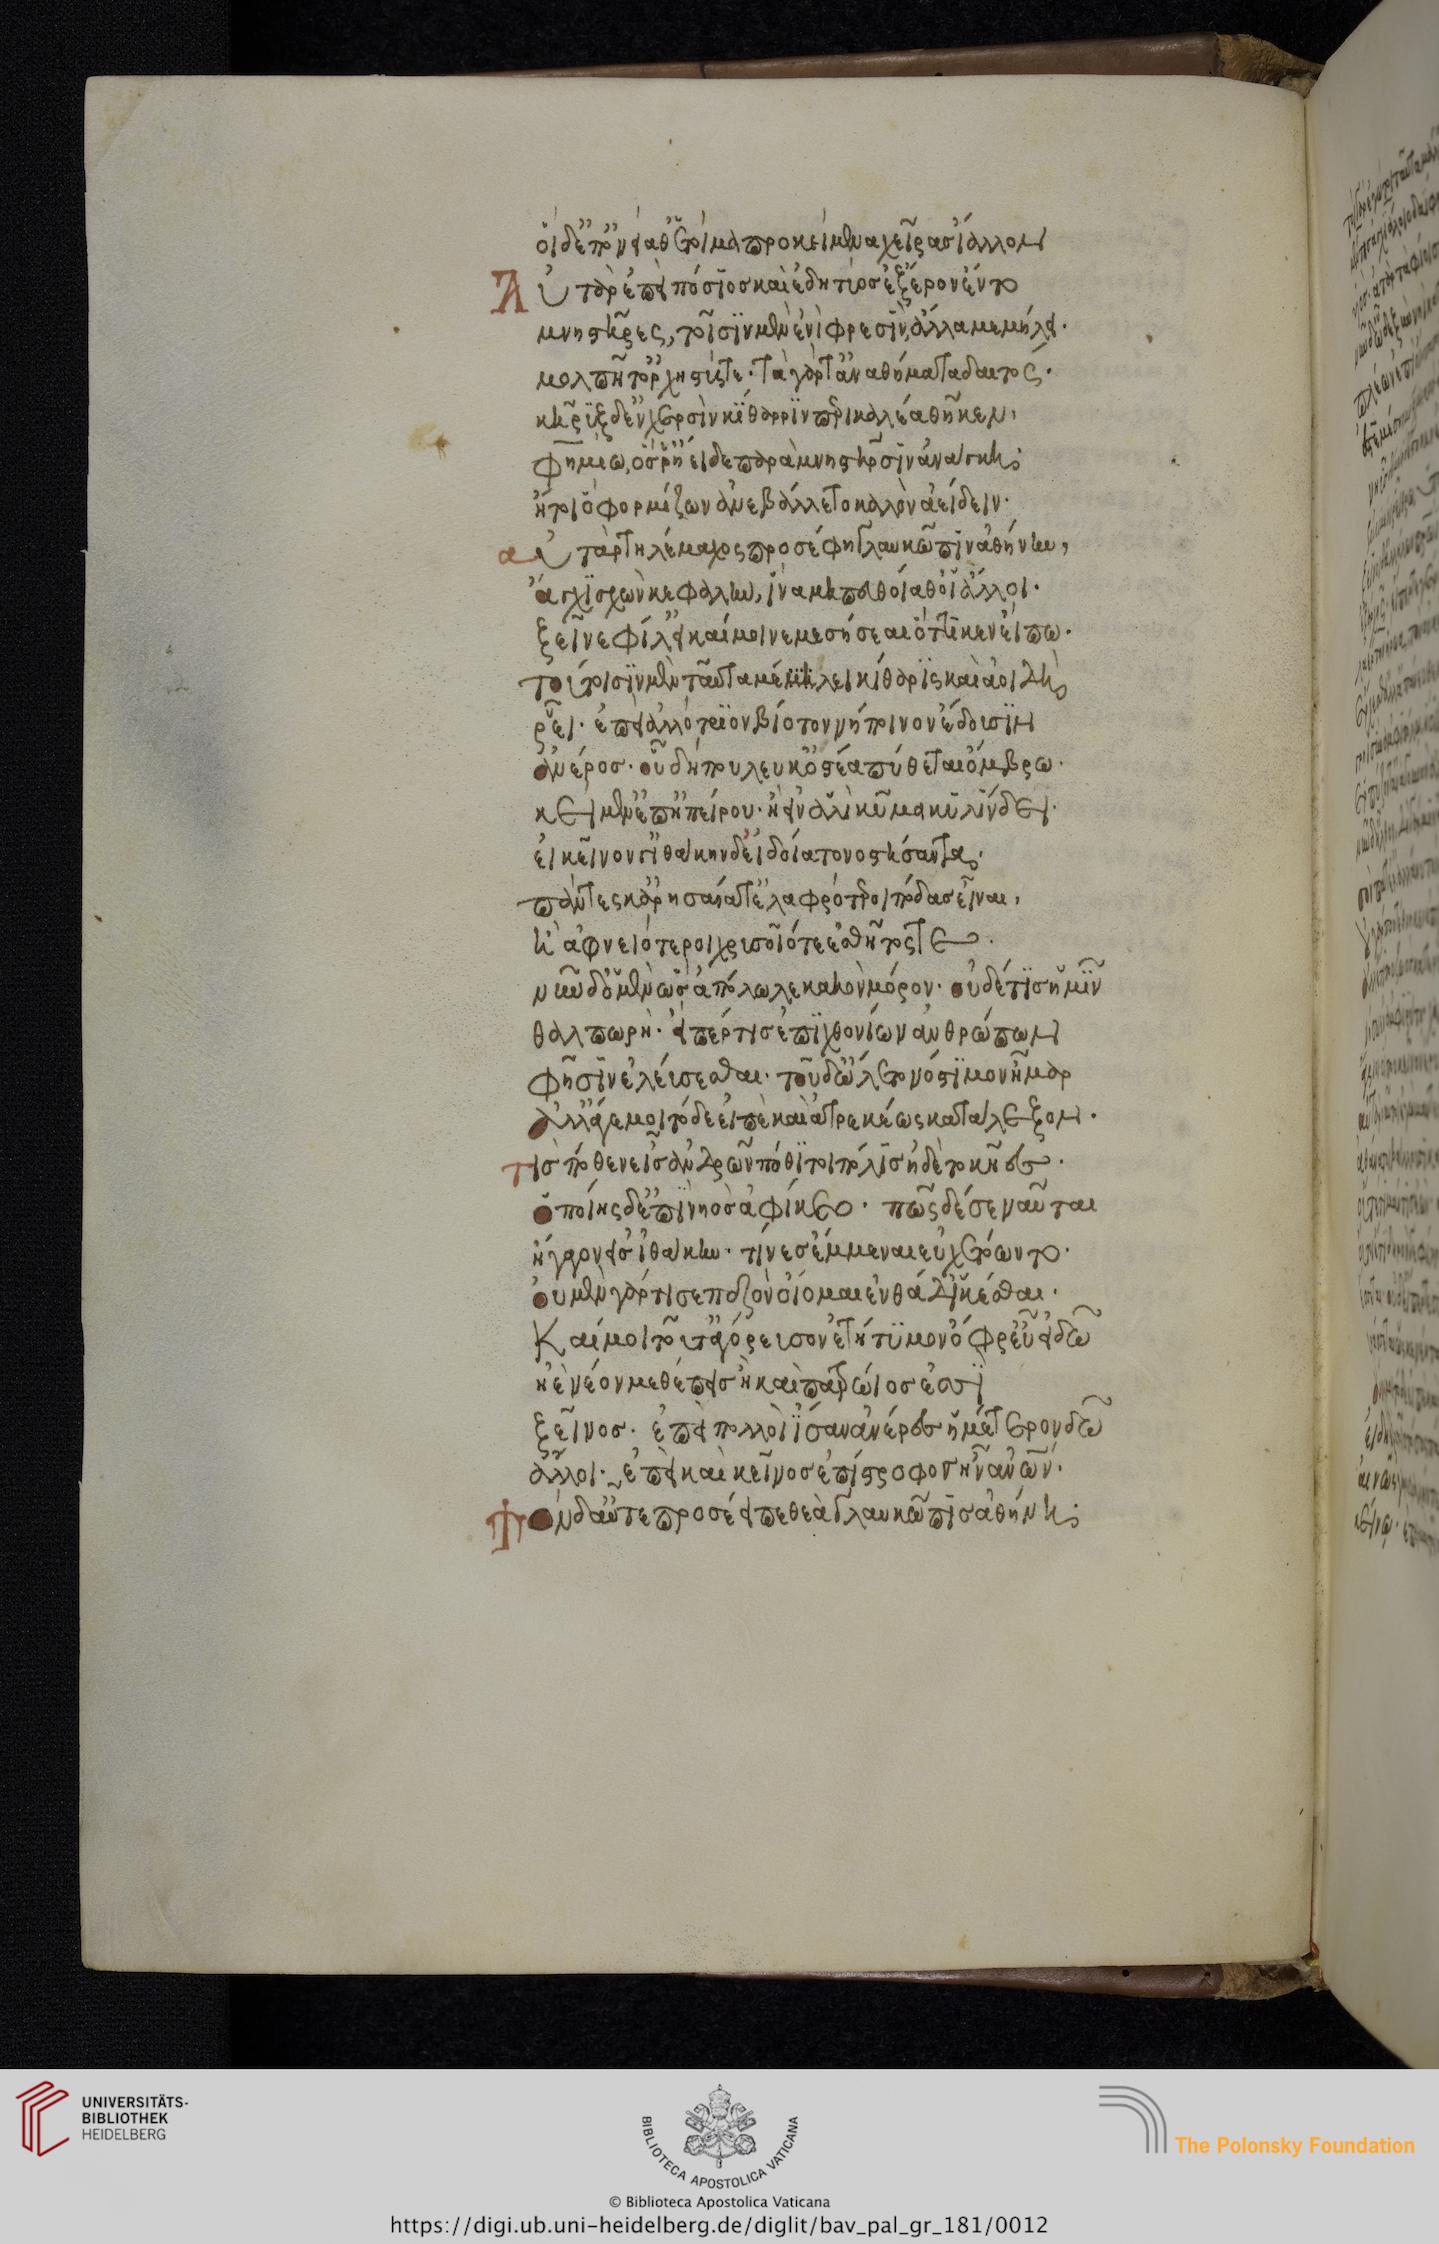 οἱ δ' ἐπ' ὀνείαθ' ἑτοῖμα προκείμενα χεῖρας ἴαλλον
Αὐτὰρ ἐπεὶ πόσιος καὶ ἐδητύος ἐξ ἔρον ἕντο
μνηστῆρες, τοῖσιν μὲν ἐνὶ φρεσὶν ἄλλα μεμήλει·
μολπή τ' ὀρχηστύς τε· τὰ γάρ τ' ἀναθήματα δαιτός·
κῆρυξ δ' ἐν χερσὶν κίθαριν περικαλέα θῆκεν,
φημίω, ὅς ῥ' ἤειδε παρὰ μνηστῆρσιν ἀνάγκη·
ἤτοι ὁ φορμίζων ἀνεβάλλετο καλὸν ἀείδειν·
αὐτὰρ τηλέμαχος προσέφη γλαυκῶπιν ἀθήνην,
ἄγχι σχὼν κεφαλὴν, ἵνα μὴ πευθοίαθ' οἱ ἄλλοι·
ξεῖνε φίλ' εἰ καί μοι νεμεσήσεαι ὅττι κεν εἴπω·
τούτοισιν μὲν ταῦτα μέλει κίθαρις καὶ ἀοιδὴ
ῥεῖ· ἐπεὶ ἀλλότριον βίοτον νήποινον ἔδουσιν
ἀνέρος· οὗ δή που λεύκ' ὀστέα πύθεται ὄμβρω·
κείμεν' ἐπ' ἠπείρου· ἢ εἰν ἁλὶ κῦμα κυλίνδει·
εἰ κεῖνόν γ' ἰθάκηνδε ἰδοίατο νοστήσαντα·
πάντες κ' ἀρησαίατ' ἐλαφρότεροι πόδας εἶναι,
ἢ ἀφνειότεροι χρυσοῖό τε ἐσθῆτός τε·
νῦν δ' ὁ μὲν ὣς ἀπόλωλε κακὸν μόρον· οὐδέ τις ἡμῖν
θαλπωρὴ· εἴπερ τις ἐπιχθονίων ἀνθρώπων
φησὶν ἐλεύσεσθαι· τοῦ δ' ὤλετο νόστιμον ἦμαρ
ἀλλ' ἄγε μοι τόδε εἰπὲ καὶ ἀτρεκέως κατάλεξον·
τίς πόθεν εἶς ἀνδρῶν πόθι τοι πόλις ἠδὲ τοκῆες·
ὁποίης δ' ἐπὶ νηὸς ἀφίκεο· πῶς δέ σε ναῦται
ἤγαγον εἰς ἰθάκην· τίνες ἔμμεναι εὐχετόωντο·
οὐ μὲν γάρ τί σε πεζὸν ὀΐομαι ἐνθάδ' ἱκέσθαι·
Καί μοι τοῦτ' ἀγόρευσον ἐτήτυμον ὄφρ' εὖ εἰδῶ
ἠὲ νέον μεθέπεις ἢ καὶ πατρώιος ἐσσὶ
ξεῖνος· ἐπεὶ πολλοὶ ἴσαν ἀνέρες ἡμέτερον δῶ
ἄλλοι· ἐπεὶ καὶ κεῖνος ἐπίστροφος ἦν ἀνθρώπων·
Τὸν δ' αὖτε προσέειπε θεὰ γλαυκῶπις ἀθήνη·
UNIVERSITÄTS-
BIBLIOTHEK
HEIDELBERG
BIBLIOTECA APOSTOLICA VATICANA
The Polonsky Foundation
© Biblioteca Apostolica Vaticana
https://digi.ub.uni-heidelberg.de/diglit/bav_pal_gr_181/0012